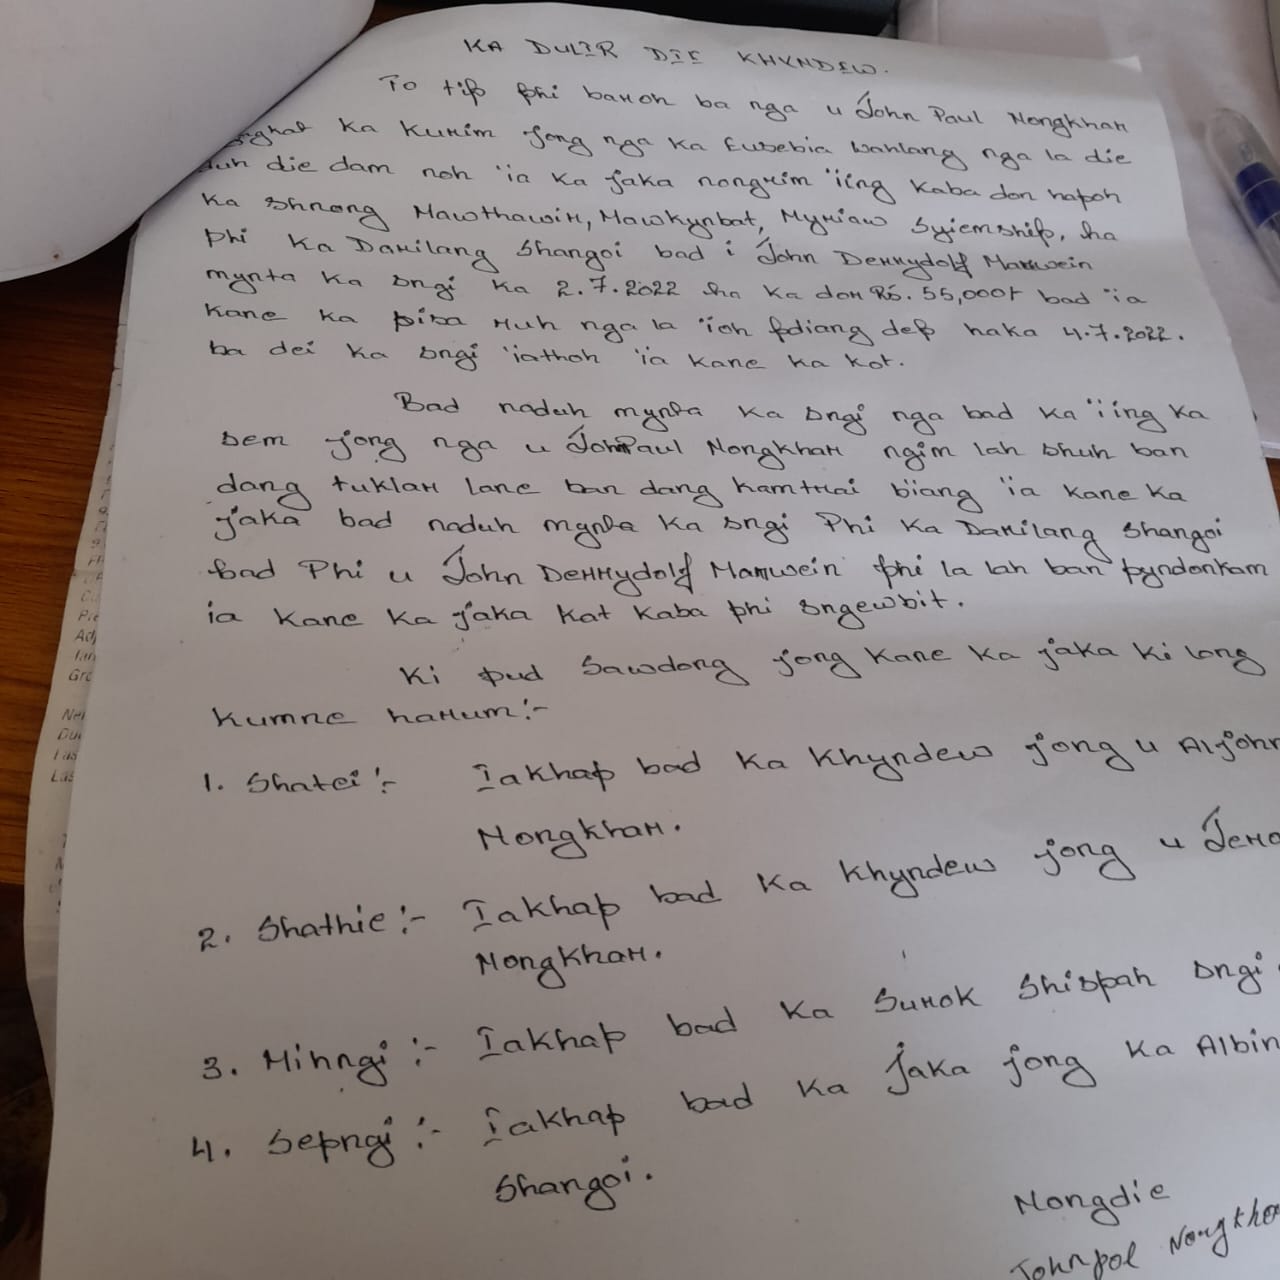 KA DULIR DIE KHYNDEW.
To tip phi baroh ba nga u John Paul Nongkhar
ka kurim jong nga ka Eusebia Wanlang nga la die
duh die dam noh ïa ka jaka nongrim ïing kaba don hapoh
ka shnong Mawthawir, Mawkynbat, Myriaw Syiemship, ha
phi ka Darilang Shangoi bad i John Derrydolf Marwein
mynta ka sngi ka 2.7.2022 ha ka dor Rs. 55,000/- bad ïa
kane ka pisa ruh nga la ïoh pdiang dep haka 4.7.2022.
ba dei ka sngi ïathoh ïa kane ka kot.
Bad naduh mynta ka sngi nga bad ka ïing ka
sem jong nga u JohnPaul Nongkhar ngim lah shuh ban
dang tuklar lane ban dang kamtrai bïang ïa kane ka
jaka bad naduh mynta ka sngi Phi ka Darilang Shangoi
bad Phi u John Derrydolf Marwein phi la lah ban pyndonkam
ia kane ka jaka kat kaba phi sngewbit.
Ki pud sawdong jong kane ka jaka ki long
kumne harum:-
1. Shatei :- Iakhap bad ka khyndew jong u Aljohn
Nongkhar.
2. Shathie :- Iakhap bad ka khyndew jong u
Nongkhar.
3. Mihngi :- Iakhap bad ka surok shispah sngi
4. Sepngi :- Iakhap bad ka jaka jong ka Albin
Shangoi.
Nongdie
Johnpol